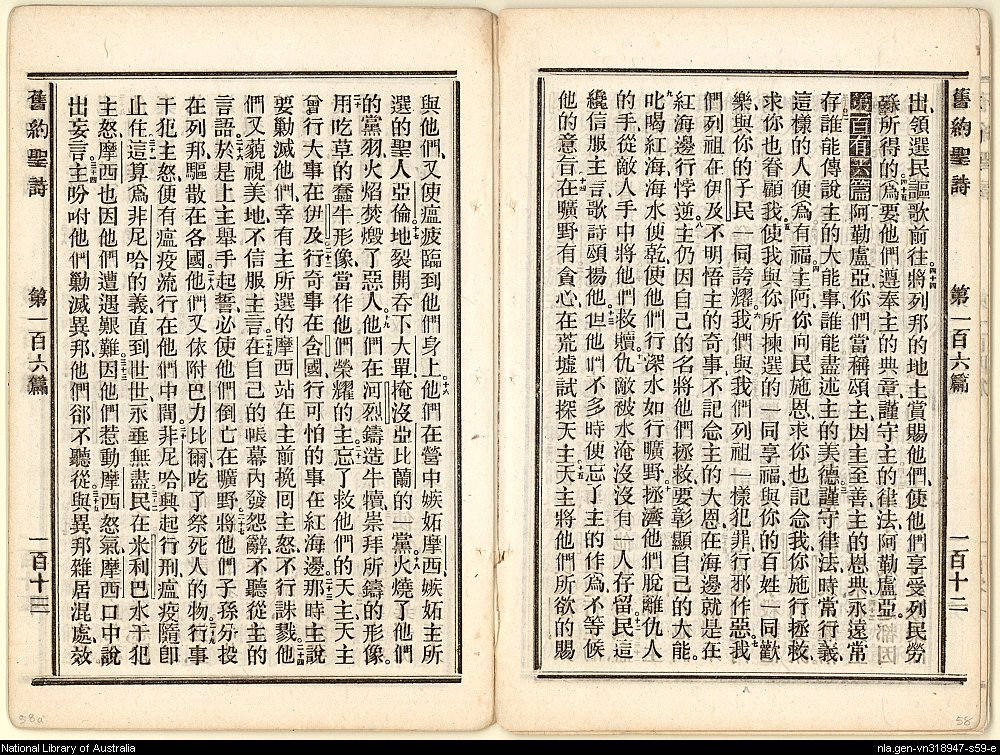 舊約聖詩 第一百六篇 一百十二
出領選民謳歌前往四十四將列邦的地土賞賜他們使他們享受列民勞
碌所得的四十五爲要他們遵奉主的典章謹守主的律法阿勒盧亞
第一百有六篇 阿勒盧亞你們當稱頌主因主至善主的恩典永遠常
存二誰能傳說主的大能事誰能盡述主的美德三謹守律法時常行義
這樣的人便爲有福四主阿你向民施恩求你也記念我你施行拯救
求你也眷顧我五使我與你所揀選的一同享福與你的百姓一同歡
樂與你的子民一同誇耀六我們與我們列祖一樣犯罪行邪作惡七我
們列祖在伊及不明悟主的奇事不記念主的大恩在海邊就是在
紅海邊行悖逆八主仍因自己的名將他們拯救要彰顯自己的大能
九叱喝紅海海水便乾使他們行深水如行曠野十拯濟他們脫離仇人
的手從敵人手中將他們救贖十一仇敵被水淹沒沒有一人存留十二民這
纔信服主言歌詩頌揚他十三但他們不多時便忘了主的作爲不等候
他的意旨十四在曠野有貪心在荒墟試探天主十五天主將他們所欲的賜
與他們又使瘟疲臨到他們身上十六他們在營中嫉妬摩西嫉妬主所
選的聖人亞倫十七地裂開吞下大單掩沒亞比蘭的一黨十八火燒了他們
的黨羽火焰焚燬了惡人十九他們在河烈鑄造牛犢崇拜所鑄的形像
二十用吃草的蠢牛形像當作他們榮耀的主二十一忘了救他們的天主天主
曾行大事在伊及二十二行奇事在含國行可怕的事在紅海邊二十三那時主說
要勦滅他們幸有主所選的摩西站在主前挽囘主怒不行誅戮二十四他
們又藐視美地不信服主言二十五在自己的帳幕內發怨辭不聽從主的
言語二十六於是上主舉手起誓必使他們倒亡在曠野二十七將他們子孫分投
在列邦驅散在各國二十八他們又依附巴力比爾吃了祭死人的物二十九行事
干犯主怒便有瘟疫流行在他們中間三十非尼哈興起行刑瘟疫隨卽
止住三十一這算爲非尼哈的義直到世世永垂無盡三十二民在米利巴水干犯
主怒摩西也因他們遭遇艱難三十三因他們惹動摩西怒氣摩西口中說
出妄言三十四主吩咐他們勦滅異邦他們郤不聽從三十五與異邦雜居混處效
舊約聖詩 第一百六篇 一百十三
58a
58
National Library of Australia
nla.gen-vn318947-s59-e